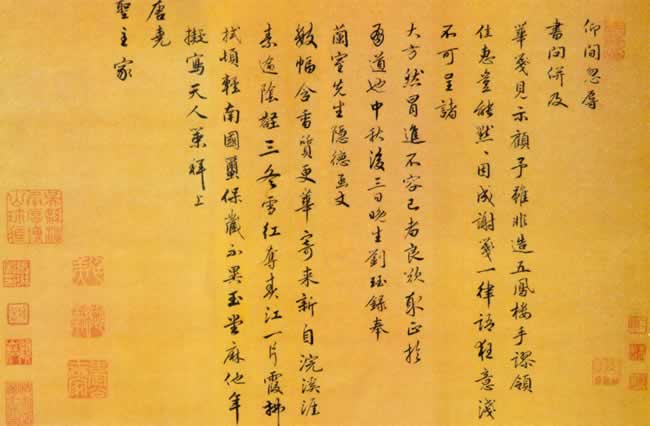 仰間忽辱
書問併及
華箋見示顧予雖非造五鳳樓手謬領
佳惠豈能默默因成謝箋一律語狂意淺
不可呈諸
大方然冒進不容已者良欲取正於
有道也中秋後三日晚生劉珏錄奉
蘭室先生隱德 文
數幅含香質更華寄來新自浣溪涯
素逾陰壑三冬雪紅奪春江一片霞拂
拭頓輕南國繭保藏不異玉堂麻他年
擬寫天人策 上
唐堯
聖主家